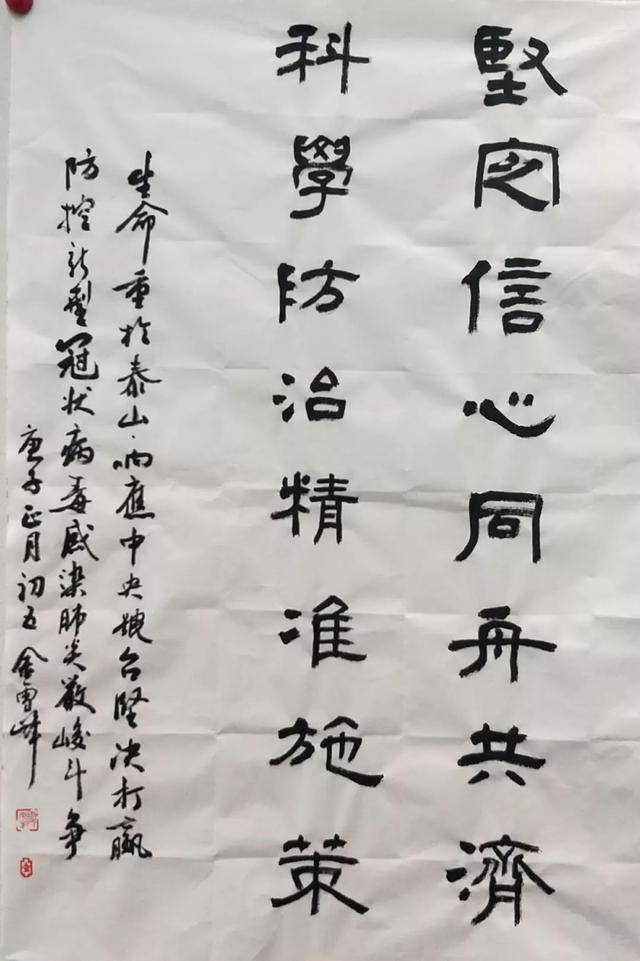 堅定信心同舟共濟
科學防治精准施策
生命重於泰山响應中央號台堅决打贏
防控新型冠状病毒感染肺炎嚴峻斗争
庚子正月初五金曹峰